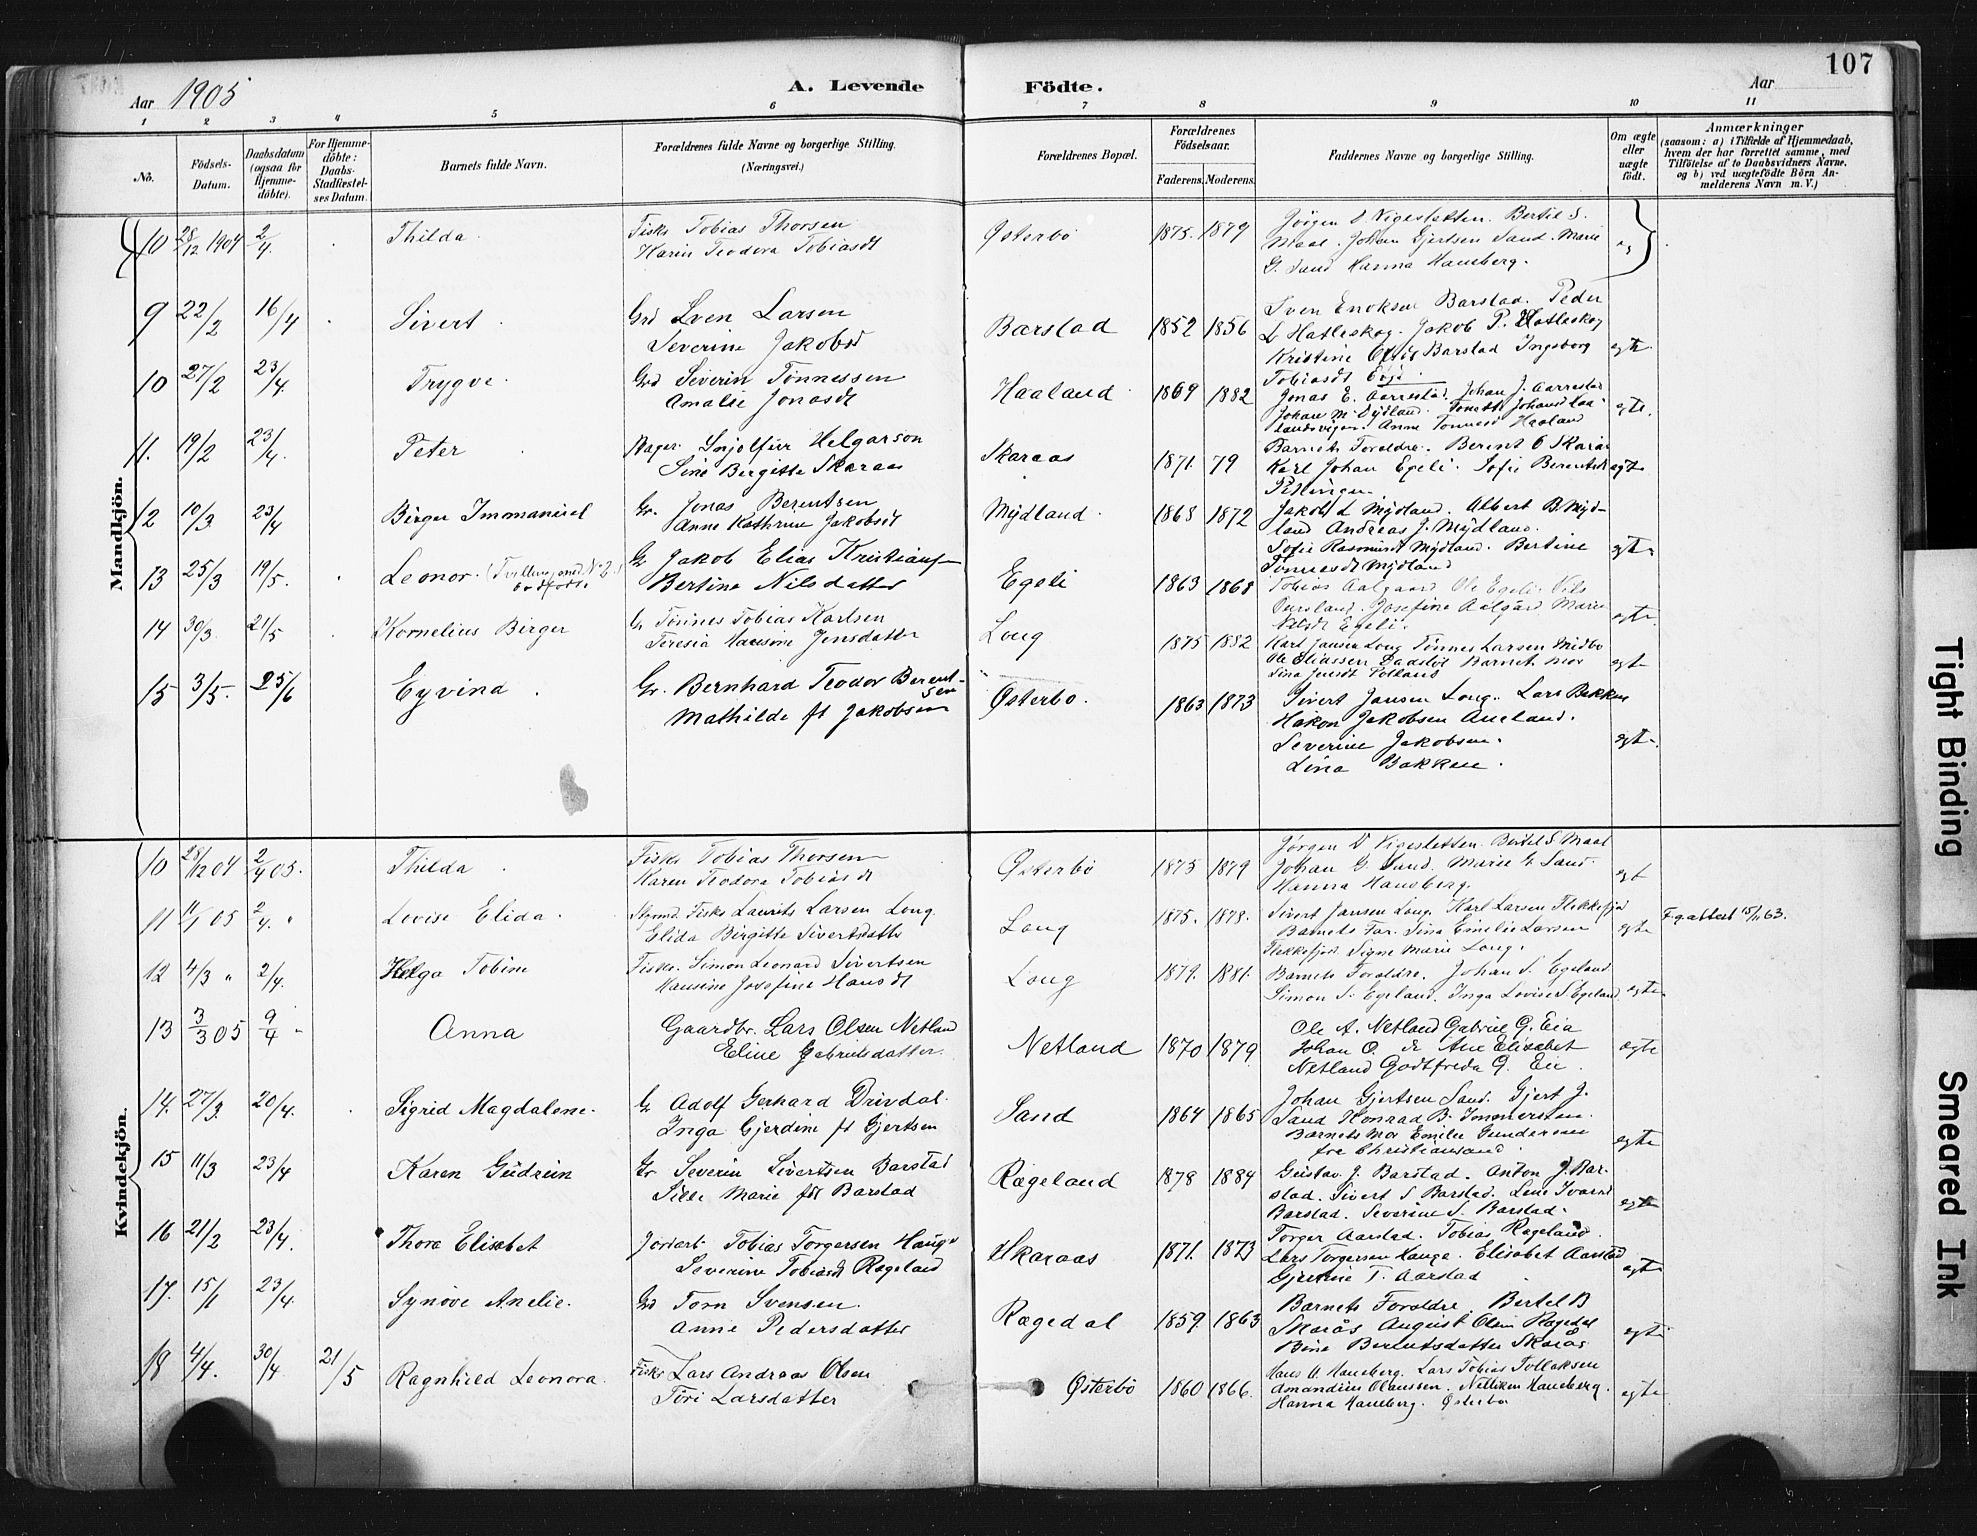 107
Aar 1905
A. Levende Födte.
Aar
1 2 3 4 5 6 7 8 9 10 11
No.
Födsels-Datum.
Daabsdatum (ogsaa for Hjemme-döbte).
For Hjemme-döbte: Daabs-Stadfæstel-ses Datum.
Barnets fulde Navn.
Forældrenes fulde Navne og borgerlige Stilling.
(Næringsvei.)
Forældrenes Bopæl.
Forældrenes Födselsaar.
Faderens. Moderens.
Faddernes Navne og borgerlige Stilling.
Om ægte eller uægte födt.
Anmærkninger
(saasom: a) i Tilfælde af Hjemmedaab, hvem der har forrettet samme, med Tilföielse af to Daabsvidners Navne, og b) ved uægtefödte Börn An-melderens Navn m. V.)
Mandkjön.
10 28/12 1904 2/4. Thilda. Fisker Tobias Thorsen
Karen Teodora Tobiasdt Østerbø 1875. 1879
Maal. Johan Gjertsen Sand. Marie
G. Sand Hanna Hausberg.
9 22/2 16/4 Sivert. Grd Sven Larsen
Severine Jakobsd Barstad 1852 1856 Sven Enoksen Barstad. Peder
L Hatleskog. Jakob P. Hatleskog
Barstad Ingeborg egte
10 27/2 23/4. Trygve. Grd Severin Tönnessen
Amalie Jonasdt Haaland 1869 1882 Tobiasdt
Jonas E. Aarrestad. Johan J. Aarrestad
Anne Haaland egte.
11. 19/2 23/4. Peter Snjolfur Helgarson
Sine Birgitte Skaraas Skaraas 1871. 79 Barnets Foroldre. Berent O Skaraas
Karl Johan Egeli. Sofie Berentsdt egte
12 10/3 23/4 Birger Immanuel Gr. Jonas Berentsen
Anne Kathrine Jakobsdt Mydland. 1868 1872 Jakob L Mydland. Albert B. Myd-
land Andreas J. Mydland.
Sofie Rasmusdt Mydland. Bertine
Tönnesdt Mydland egte
13 25/3 19/5. Leonor. Gr Jakob Elias
Bertine Nilsdatter Egeli 1863 1868 Tobias Aalgaard Ole Egeli. Nils
Josefine Aalgård Marie
Egeli. egte
14 30/3. 21/5 Kornelius Birger Gr Tönnes Tobias Karlsen
Teresia Jensdatter Long 1875 1882 Karl Jansen Long Tönnes Larsen Midbø
Ole Eliassen Barnets Mor
egte
15 3/5. 25/6 Eyvind. Gr. Bernhard Teodor Berent-
sen
Mathilde ft Jakobsen Østerbø. 1863 1873 Sivert Jansen Long. Lars Bakken
Håkon Jakobsen Aneland.
Severine Jakobsen.
Lina Bakken. egte.
Kvindekjön.
10 28/12 04 2/4 05. Thilda. Fisker Tobias Thorsen
Karen Teodora Tobiasdt Østerbö 1875 1879 Bertil S Maal
Johan G. Sand. Marie G. Sand.
Hanna Hausberg. egt
11 11/1 05 2/4. " Lovise Elida. Fisker Laurits Larsen Long.
Elida Birgitte Sivertsdatter Long 1875. 1878. Sivert Jansen Long. Karl Larsen Flekkefjord
Barnets Far. Sina Emilie Larsen
Flekkefjord. Signe Marie Long. egte F.g.attest 15/11 63.
12 4/3 " 2/4. Helga Tobine Fisker. Simon Leonard Sivertsen
Hansine Josefine Hansdt Long 1879. 1881. Barnets Foroldre. Johan S. Egeland
Simon S. Egeland. Inga Lovise S. Egeland. egte
13 3/3 05 9/4 " Anna Gaardbr. Lars Olsen Netland
Eline Gabrielsdatter. Netland 1870 1879 Ole A. Netland Gabriel G. Eia
Johan O. do Ane Elisabet
Netland Godtfreda G. Eie. ægte
14. 27/3. 20/4. Sigrid Magdalene. Gr Adolf Gerhard Drivdal.
Inga Gjerdine ft Gjertsen Sand 1864 1865 Johan Gjertsen Sand. Gjert J.
Sand Konrad B. Immerstein.
Barnets Mor Emilie Gundersen
fra Christiansand. egte
15 11/3 23/4 Karen Gudrun Gr Severin Sivertsen Barstad
Sille Marie fdt Barstad Rægeland 1878 1884 Gustav J. Barstad. Anton J. Bar-
stad. Sivert S Barstad. Lene Ivarsd
Barstad. Severine S. Barstad. egte
16 21/2 23/4. Thora Elisabet Jordarb. Tobias Torgersen Hauge
Severine Tobiasdt Rægeland Skaraas 1871. 1873 Torger Aarstad. Tobias Rægeland.
Lars Torgersen Hauge. Elisabet Aarstad
T. Aarstad egte
17. 15/1 23/4. Synöve Anelie. Grd Torn Svensen.
Anne Pedersdatter Rægedal 1859. 1863 Barnets Foroldre. Bertel B
Skarås August Olsen Rægedal
Bine Berentsdatter Skarås egte
18 4/4. 30/4 21/5 Ragnhild Leonora. Fisker Lars Andreas Olsen
Töri Larsdatter Østerbö 1860 1866. Hans O. Haneberg. Lars Tobias Tollaksen
Amandius Olaussen. Haneberg.
Hanna Haneberg. Østerbø egte
Tight Binding
Smeared Ink